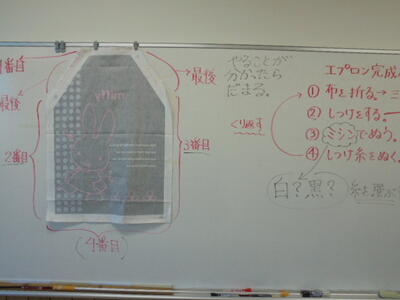 1番目
最後
2番目
(4番目)
3番目
最後
miffy
やることが
分かったら
だまる。
くり返す
エプロン完成
① 布を折る。→三
② しつけをする。
③ ミシンでぬう。
④ しつけ糸をぬく。
白？黒？
糸を選ぶ